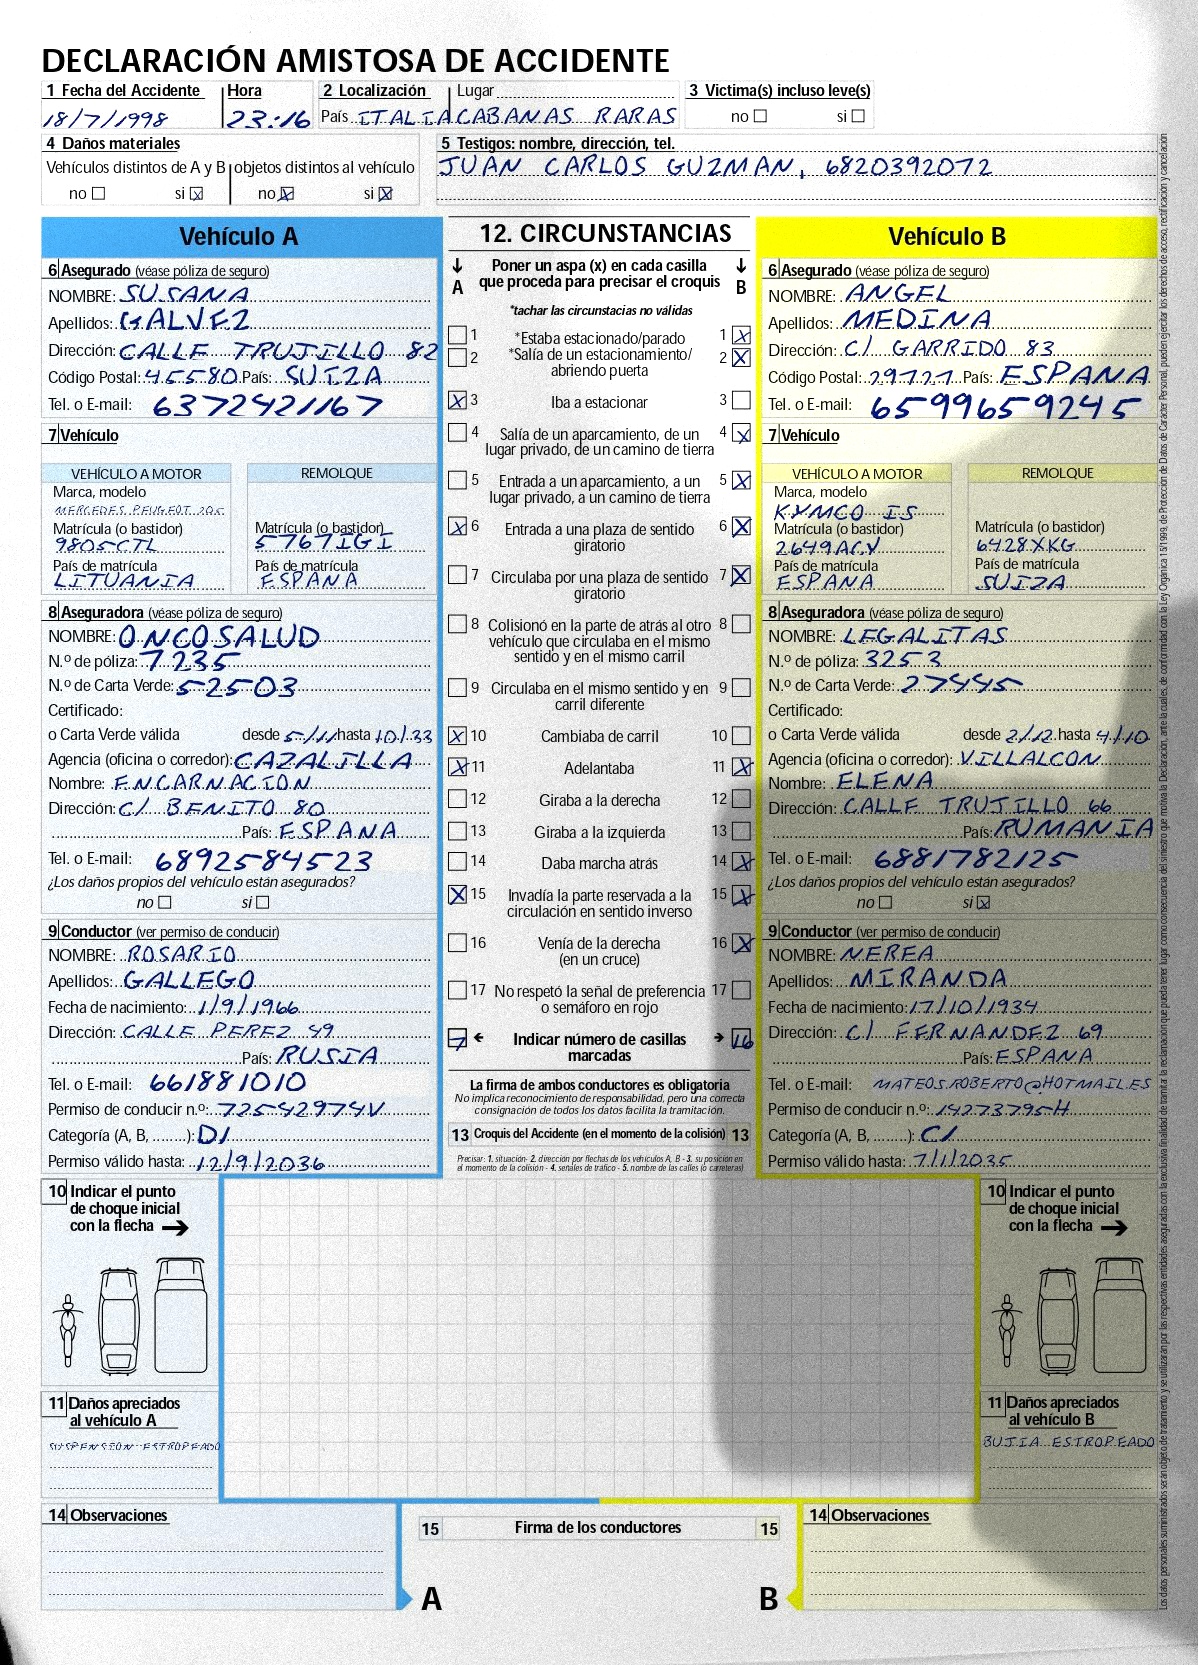 DECLARACIÓN AMISTOSA DE ACCIDENTE
1 Fecha del Accidente Hora 2 Localización Lugar 3 Victima(s) incluso leve(s)
18/7/1998 23:16 País ITALIA CABANAS RARAS no si
4 Daños materiales 5 Testigos: nombre, dirección, tel.
Vehículos distintos de A y B objetos distintos al vehículo JUAN CARLOS GUZMAN, 6820392072
no si X no X si X
Vehículo A
6 Asegurado (véase póliza de seguro)
NOMBRE: SUSANA
Apellidos: GALVEZ
Dirección: CALLE TRUJILLO 82
Código Postal: 45580 País: SUIZA
Tel. o E-mail: 6372421167
7 Vehículo
VEHÍCULO A MOTOR REMOLQUE
Marca, modelo
MERCEDES PEUGEOT 205
Matrícula (o bastidor) Matrícula (o bastidor)
9805CTL 5767IGI
País de matrícula País de matrícula
LITUANIA ESPANA
8 Aseguradora (véase póliza de seguro)
NOMBRE: ONCOSALUD
N.º de póliza: 7235
N.º de Carta Verde: 52503
Certificado:
o Carta Verde válida desde 5/11/ hasta 10/33
Agencia (oficina o corredor): CAZALILLA
Nombre: ENCARNACION
Dirección: C/ BENITO 80
País: ESPANA
Tel. o E-mail: 6892584523
¿Los daños propios del vehículo están asegurados?
no si
9 Conductor (ver permiso de conducir)
NOMBRE: ROSARIO
Apellidos: GALLEGO
Fecha de nacimiento: 1/9/1966
Dirección: CALLE PEREZ 49
País: RUSIA
Tel. o E-mail: 661881010
Permiso de conducir n.º: 72542974V
Categoría (A, B, ........): D1
Permiso válido hasta: 12/9/2036
10 Indicar el punto
de choque inicial
con la flecha
11 Daños apreciados
al vehículo A
SUSPENSION ESTROPEADO
14 Observaciones
12. CIRCUNSTANCIAS
A Poner un aspa (x) en cada casilla B
que proceda para precisar el croquis
*tachar las circunstacias no válidas
1 *Estaba estacionado/parado 1 X
2 *Salía de un estacionamiento/ 2 X
abriendo puerta
X 3 Iba a estacionar 3
4 Salía de un aparcamiento, de un 4 X
lugar privado, de un camino de tierra
5 Entrada a un aparcamiento, a un 5 X
lugar privado, a un camino de tierra
X 6 Entrada a una plaza de sentido 6 X
giratorio
7 Circulaba por una plaza de sentido 7 X
giratorio
8 Colisionó en la parte de atrás al otro 8
vehículo que circulaba en el mismo
sentido y en el mismo carril
9 Circulaba en el mismo sentido y en 9
carril diferente
X 10 Cambiaba de carril 10
X 11 Adelantaba 11 X
12 Giraba a la derecha 12
13 Giraba a la izquierda 13
14 Daba marcha atrás 14 X
X 15 Invadía la parte reservada a la 15 X
circulación en sentido inverso
16 Venía de la derecha 16 X
(en un cruce)
17 No respetó la señal de preferencia 17
o semáforo en rojo
7 Indicar número de casillas 16
marcadas
La firma de ambos conductores es obligatoria
No implica reconocimiento de responsabilidad, pero una correcta
consignación de todos los datos facilita la tramitación.
13 Croquis del Accidente (en el momento de la colisión) 13
Precisar: 1. situación- 2. dirección por flechas de los vehículos A, B - 3. su posición en
el momento de la colisión - 4. señales de tráfico - 5. nombre de las calles (o carreteras)
15 Firma de los conductores 15
A B
Vehículo B
6 Asegurado (véase póliza de seguro)
NOMBRE: ANGEL
Apellidos: MEDINA
Dirección: C/ GARRIDO 83
Código Postal: 29727 País: ESPANA
Tel. o E-mail: 6599659245
7 Vehículo
VEHÍCULO A MOTOR REMOLQUE
Marca, modelo
KYMCO IS
Matrícula (o bastidor) Matrícula (o bastidor)
2649ACV 6428XKG
País de matrícula País de matrícula
ESPANA SUIZA
8 Aseguradora (véase póliza de seguro)
NOMBRE: LEGALITAS
N.º de póliza: 3253
N.º de Carta Verde: 27445
Certificado:
o Carta Verde válida desde 2/12 hasta 4/10
Agencia (oficina o corredor): VILLALCON
Nombre: ELENA
Dirección: CALLE TRUJILLO 66
País: RUMANIA
Tel. o E-mail: 6881782125
¿Los daños propios del vehículo están asegurados?
no si X
9 Conductor (ver permiso de conducir)
NOMBRE: NEREA
Apellidos: MIRANDA
Fecha de nacimiento: 17/10/1934
Dirección: C/ FERNANDEZ 69
País: ESPANA
Tel. o E-mail: MATEOS.ROBERTO@HOTMAIL.ES
Permiso de conducir n.º: 14273795H
Categoría (A, B, ........): C1
Permiso válido hasta: 7/1/2035
10 Indicar el punto
de choque inicial
con la flecha
11 Daños apreciados
al vehículo B
BUJIA ESTROPEADO
14 Observaciones